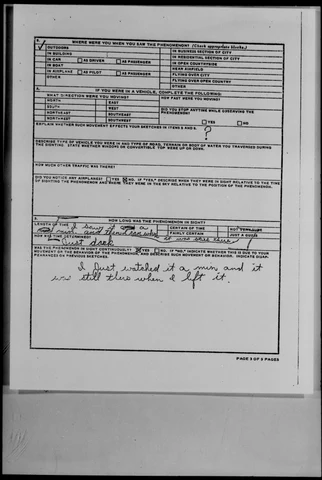 WHERE WERE YOU WHEN YOU SAW THE PHENOMENON? (Check appropriate blocks.)
OUTDOORS
IN BUSINESS SECTION OF CITY
IN BUILDING
IN RESIDENTIAL SECTION OF CITY
IN CAR AS DRIVER AS PASSENGER
IN OPEN COUNTRYSIDE
IN BOAT
NEAR AIRFIELD
IN AIRPLANE AS PILOT AS PASSENGER
FLYING OVER CITY
OTHER
FLYING OVER OPEN COUNTRY
OTHER
IF YOU WERE IN A VEHICLE, COMPLETE THE FOLLOWING:
WHAT DIRECTION WERE YOU MOVING?
HOW FAST WERE YOU MOVING?
NORTH EAST
SOUTH WEST
DID YOU STOP ANYTIME WHILE OBSERVING THE PHENOMENON?
NORTHEAST SOUTHEAST
NORTHWEST SOUTHWEST
YES NO
EXPLAIN WHETHER SUCH MOVEMENT AFFECTS YOUR SKETCHES IN ITEMS 5 AND 6.
?
DESCRIBE TYPE OF VEHICLE YOU WERE IN AND TYPE OF ROAD, TERRAIN OR BODY OF WATER YOU TRAVERSED DURING THE SIGHTING. STATE WHETHER WINDOWS OR CONVERTIBLE TOP WERE UP OR DOWN.
HOW MUCH OTHER TRAFFIC WAS THERE?
DID YOU NOTICE ANY AIRPLANES? YES NO. IF "YES," DESCRIBE WHEN THEY WERE IN SIGHT RELATIVE TO THE TIME OF SIGHTING THE PHENOMENON AND WHERE THEY WERE IN THE SKY RELATIVE TO THE POSITION OF THE PHENOMENON.
HOW LONG WAS THE PHENOMENON IN SIGHT?
LENGTH OF TIME I saw it a
CERTAIN OF TIME NOT VERY SURE
FAIRLY CERTAIN JUST A GUESS
HOW WAS TIME DETERMINED?
WAS THE PHENOMENON IN SIGHT CONTINUOUSLY? YES NO. IF "NO," INDICATE WHETHER THIS IS DUE TO YOUR MOVEMENT OR THE BEHAVIOR OF THE PHENOMENON, AND DESCRIBE SUCH MOVEMENT OR BEHAVIOR. INDICATE DISAPPEARANCES ON PREVIOUS SKETCHES.
I Just watched it a min and it
was still there when I left it.
PAGE 3 OF 5 PAGES